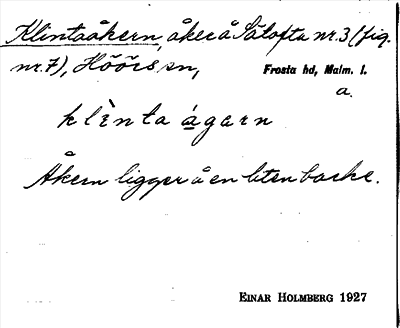 Klintaåkern, åker å Sätofta nr. 3 (fig.
nr. 7), Höörs sn, Frosta hd, Malm. l.
a.
klìnta ágarn
Åkern ligger å en liten backe.
EINAR HOLMBERG 1927